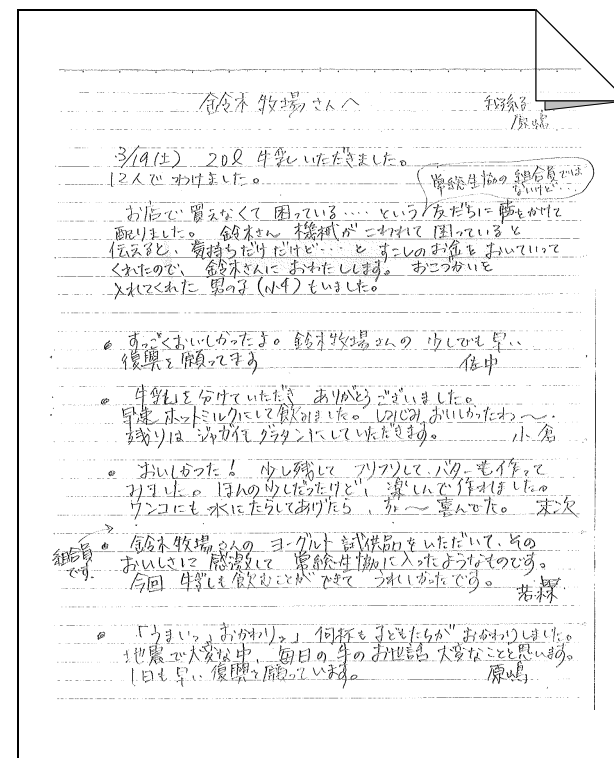 鈴木牧場さんへ
原嶋
3/19(土) 20ℓ 牛乳いただきました。
12人でわけました。
常総生協の組合員では
ないけど…
お店で買えなくて困っている‥‥という友だちに声をかけて
配りました。鈴木さん 機械がこわれて困っていると
伝えると、気持ちだけだけど…と すこしのお金をおいていって
くれたので、鈴木さんにおわたしします。おこづかいを
入れてくれた男の子(小4)もいました。
• すっごくおいしかったよ。鈴木牧場さんの 少しでも早い
復興を願ってます 田中
• 牛乳を分けていただき ありがとうございました。
早速ホットミルクにして飲みました。しみじみおいしかったわ〜。
残りは ジャガイモグラタンにしていただきます。 小倉
• おいしかった! 少し残して フリフリして、バターも作って
みました。ほんの少しだったけど、楽しんで作れました。
ワンコにも水にたらしてあげたら、ちょ〜喜んでた。 末次
組合員
です。
• 鈴木牧場さんの ヨーグルト試供品をいただいて、その
おいしさに感激して 常総生協に入ったようなものです。
今回 牛乳も飲むことができて うれしかったです。
• 「うまいっ、おかわりっ」何杯も子どもたちがおかわりしました。
地震で大変な中、毎日の牛のお世話 大変なことと思います。
1日も早い復興を願っています。 原嶋